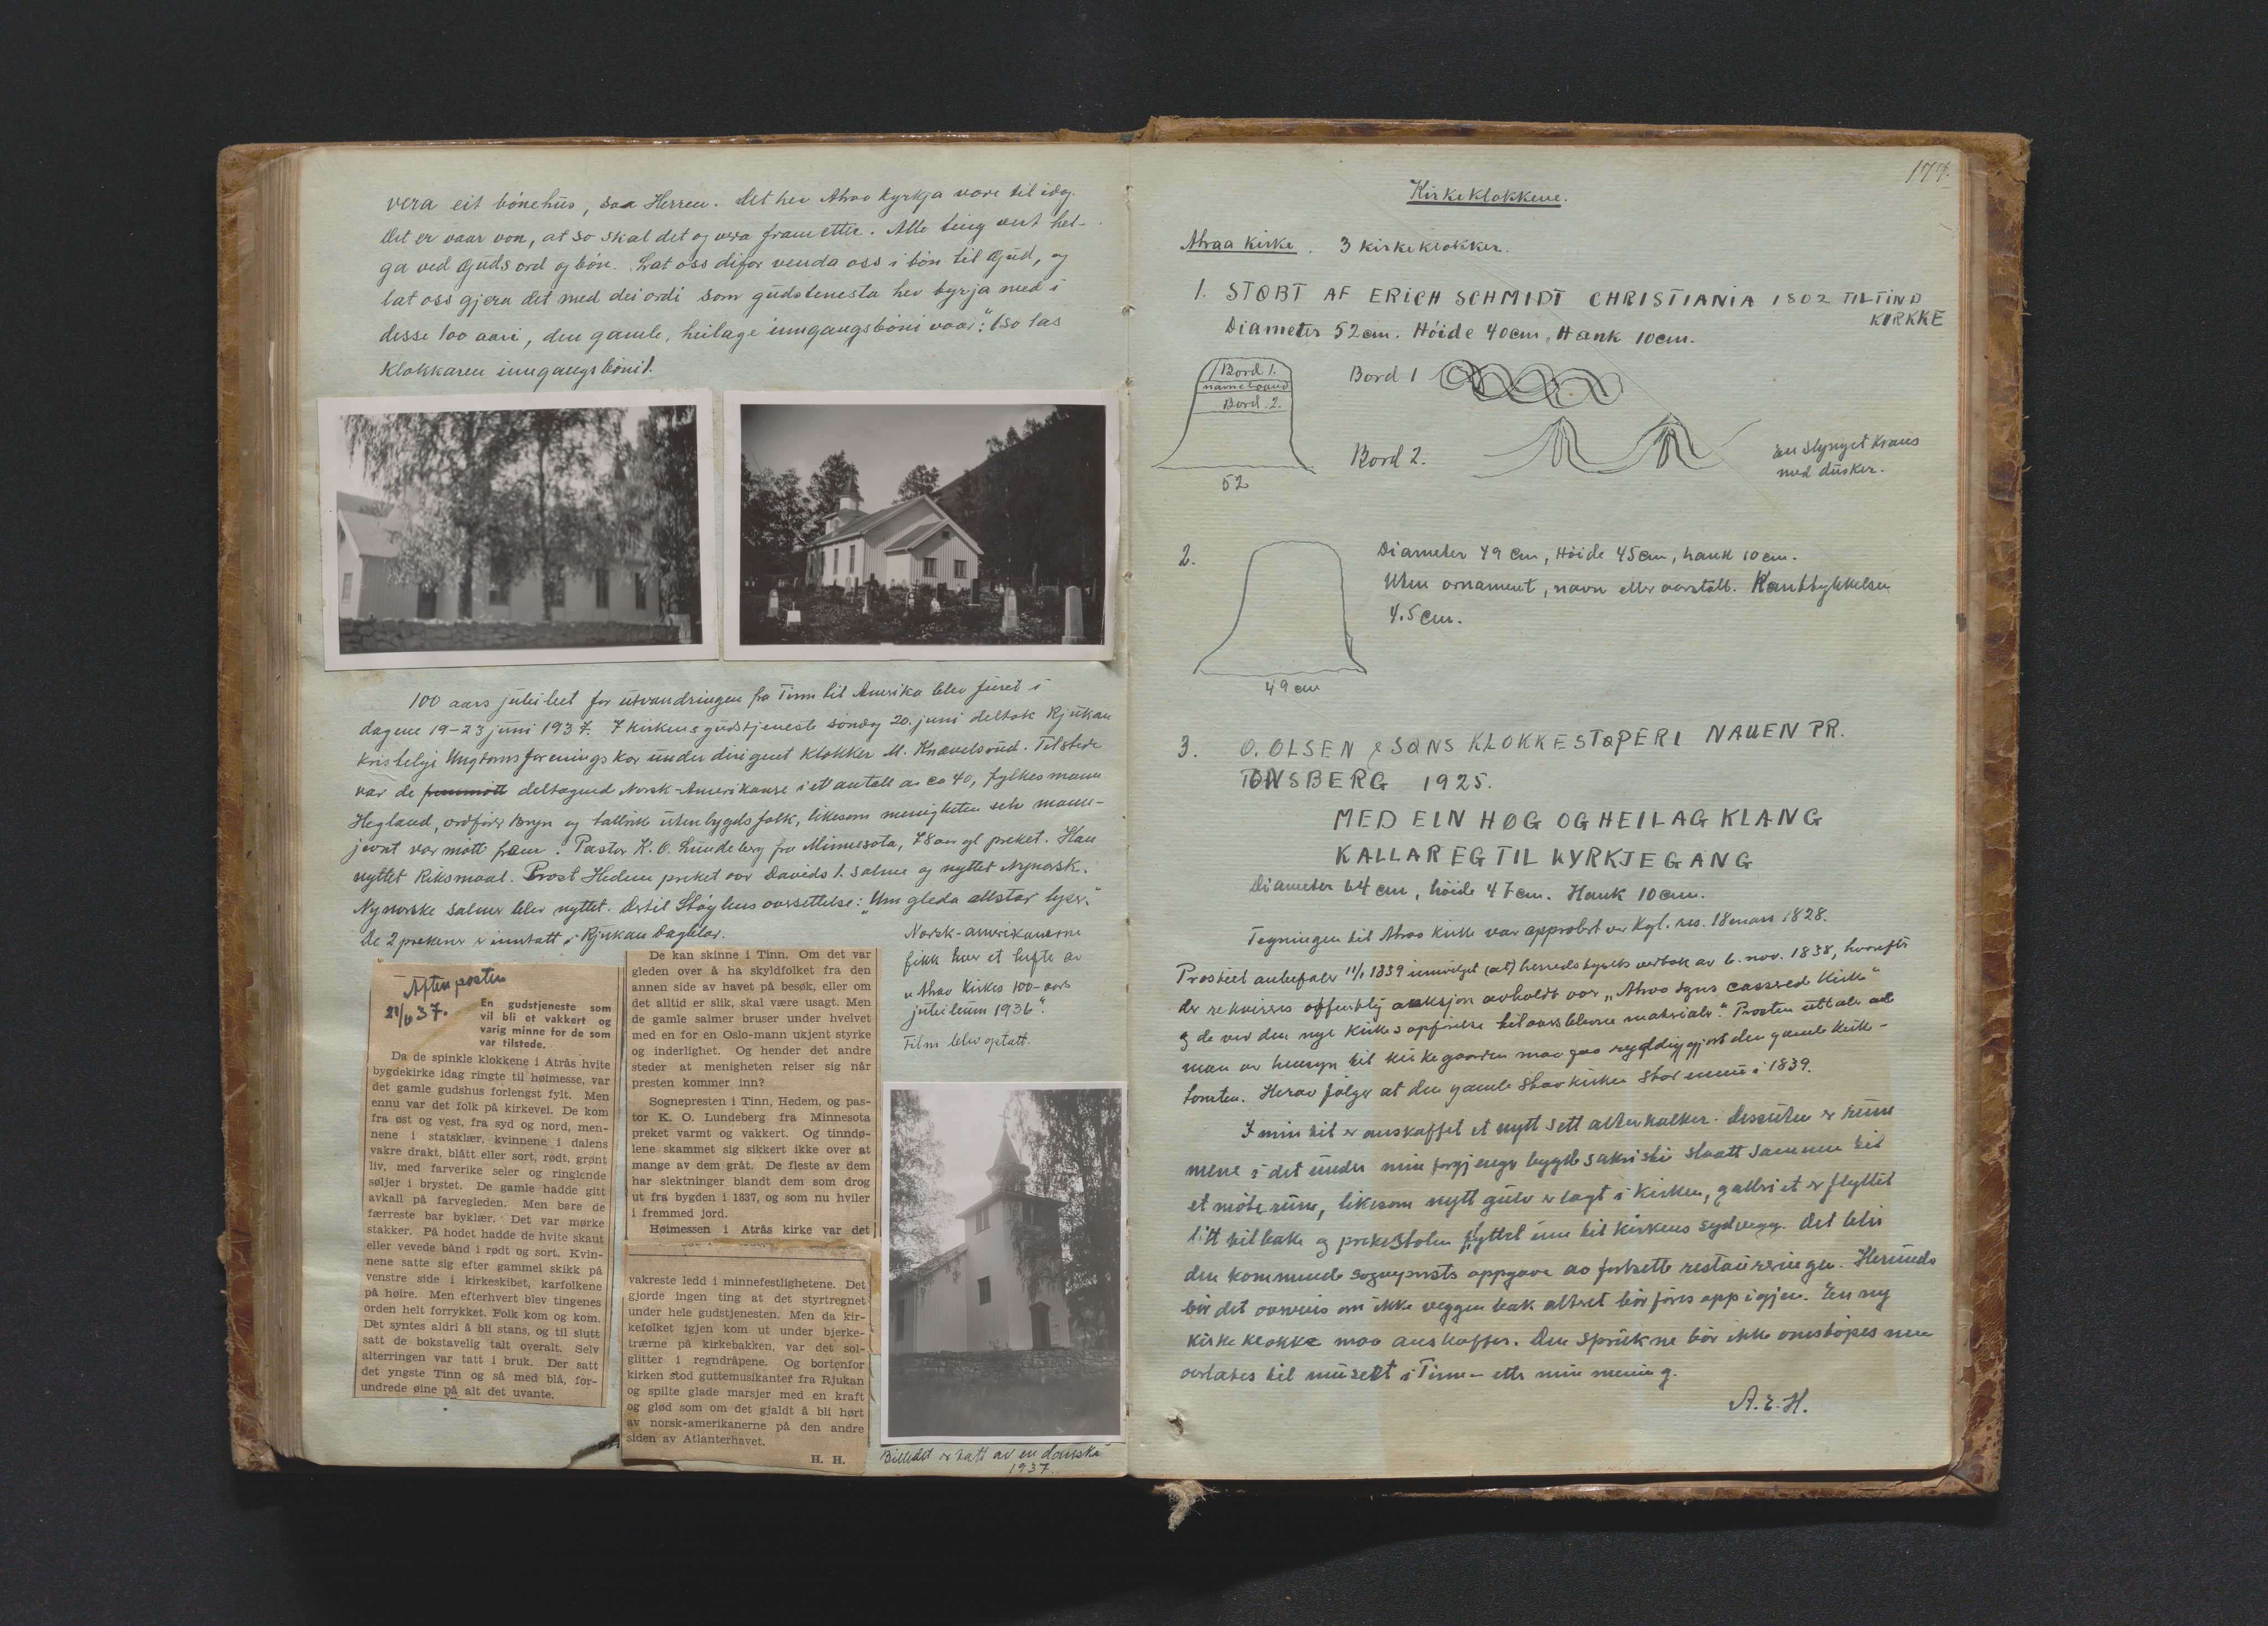 vera eit bönehus, saa Herren. Det hev Atraa kyrkja vore til idag.
Det er vaar von, at so skal det og vera framette. Alle ting vert hel-
ga ved Guds ord og bön. Lat oss difor venda oss i bön til Gud, og
lat oss gjera det med dei ordi som gudstenesta hev byrja med i
desse 100 aari, den gamle, heilage inngangsböni vaar": (so las
Klokkaren inngangsböni).
100 aars jubileet for utvandringen fra Tinn til Amerika blev feiret i
dagene 19-23 juni 1937. I kirkens gudstjeneste söndag 20. juni deltok Rjukan
kristelige Ungdomsforenings kor under dirigent Klokker M. Knavelsrud. Tilstede
var de deltagend Norsk-Amerikanere i et antall av ca 40, fylkesmann
Hegland, ordförer Bryn og tallrike utenbygds folk, likesom menigheten selv manne-
jevnt var mött frem. Pastor K. O. Lundeberg fra Minnesota, 78 aar gl preket. Han
nyttet Riksmaal. Prost Hedem preket over Davids 1. salme og nyttet Nynorsk.
Nynorske salmer blev nyttet. Dertil Stöylens oversettelse: "Um gleda allstør lyser."
De 2 prekener er inntatt i Rjukan Dagblad.
Norsk-amerikanerne
fikk hver et hefte av
"Atraa Kirkes 100-aars
jubileum 1936".
Film blev optatt.
Aftenposten
21/6 37.
En gudstjeneste som
vil bli et vakkert og
varig minne for de som
var tilstede.
Da de spinkle klokkene i Atrås hvite
bygdekirke idag ringte til høimesse, var
det gamle gudshus forlengst fylt. Men
ennu var det folk på kirkevei. De kom
fra øst og vest, fra syd og nord, men-
nene i statsklær, kvinnene i dalens
vakre drakt, blått eller sort, rødt, grønt
liv, med farverike seler og ringlende
søljer i brystet. De gamle hadde gitt
avkall på farvegleden. Men bare de
færreste bar byklær. Det var mørke
stakker. På hodet hadde de hvite skaut
eller vevede bånd i rødt og sort. Kvin-
nene satte sig efter gammel skikk på
venstre side i kirkeskibet, karfolkene
på høire. Men efterhvert blev tingenes
orden helt forrykket. Folk kom og kom.
Det syntes aldri å bli stans, og til slutt
satt de bokstavelig talt overalt. Selv
alterringen var tatt i bruk. Der satt
det yngste Tinn og så med blå, for-
undrede øine på alt det uvante.
De kan skinne i Tinn. Om det var
gleden over å ha skyldfolket fra den
annen side av havet på besøk, eller om
det alltid er slik, skal være usagt. Men
de gamle salmer bruser under hvelvet
med en for en Oslo-mann ukjent styrke
og inderlighet. Og hender det andre
steder at menigheten reiser sig når
presten kommer inn?
Sognepresten i Tinn, Hedem, og pas-
tor K. O. Lundeberg fra Minnesota
preket varmt og vakkert. Og tinndø-
lene skammet sig sikkert ikke over at
mange av dem gråt. De fleste av dem
har slektninger blandt dem som drog
ut fra bygden i 1837, og som nu hviler
i fremmed jord.
Høimessen i Atrås kirke var det
vakreste ledd i minnefestlighetene. Det
gjorde ingen ting at det styrtregnet
under hele gudstjenesten. Men da kir-
kefolket igjen kom ut under bjerke-
trærne på kirkebakken, var det sol-
glitter i regndråpene. Og bortenfor
kirken stod guttemusikanter fra Rjukan
og spilte glade marsjer med en kraft
og glød som om det gjaldt å bli hørt
av norsk-amerikanerne på den andre
siden av Atlanterhavet.
H. H.
Billedet er tatt av en danske
1937.
177.
Kirkeklokkene.
Atraa kirke. 3 kirkeklokker.
1. STØBT AF ERICH SCHMIDT CHRISTIANIA 1802 TIL TIND
KIRKKE
Diameter 52 cm. Höide 40 cm, Hank 10 cm.
Bord 1.
navnebaand
Bord. 2.
52
Bord 1
Bord 2.
En slynget Krans
med dusker.
2.
Diameter 49 cm, Höide 45 cm, hank 10 cm.
Uten ornament, navn eller aarstall. Kanttykkelsen
4.5 cm.
49 cm
3. O. OLSEN & SØNS KLOKKESTØPERI NAUEN PR.
TØNSBERG 1925.
MED EIN HØG OG HEILAG KLANG
KALLAR EG TIL KYRKJEGANG
Diameter 64 cm, höide 47 cm. Hank 10 cm.
Tegningen til Atraa kirke var approbert ved Kgl. res. 18 mars 1828.
Prostiet anbefaler 11/1 1839 innvilget (at) herredstyrets vedtak av 6. nov. 1838, hvorefter
der rekvireres offentlig auksjon avholdt over "Atraa Sogns casserede Kirke"
og de ved den nye kirkes opförelse tiloversblevne materialer." Prosten uttaler at
man av hensyn til kirkegaarden maa faa ryddiggjort den gamle kirke-
tomten. Herav fölger at den gamle stavkirken stod ennu i 1839.
I min tid er anskaffet et nytt sett alterkalker. Dessuten er rum
mene i det under min forgjenger bygde sakristi slaatt sammen til
et möterum, likesom nytt gulv er lagt i kirken, galleriet er flyttet
litt tilbake og prekestolen flyttet inn til kirkens sydvegg. Det blir
den kommende sogneprests oppgave aa fortsette restaureringen. Herunder
bör det overveies om ikke veggen bak alteret bör föres opp igjen. En ny
kirkeklokke maa anskaffes. Den sprukne bör ikke omstöpes men
overlates til museet i Tinn - etter min mening.
A. E. H.